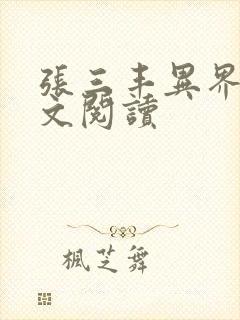 張三丰異界
文閱讀
楓芝舞